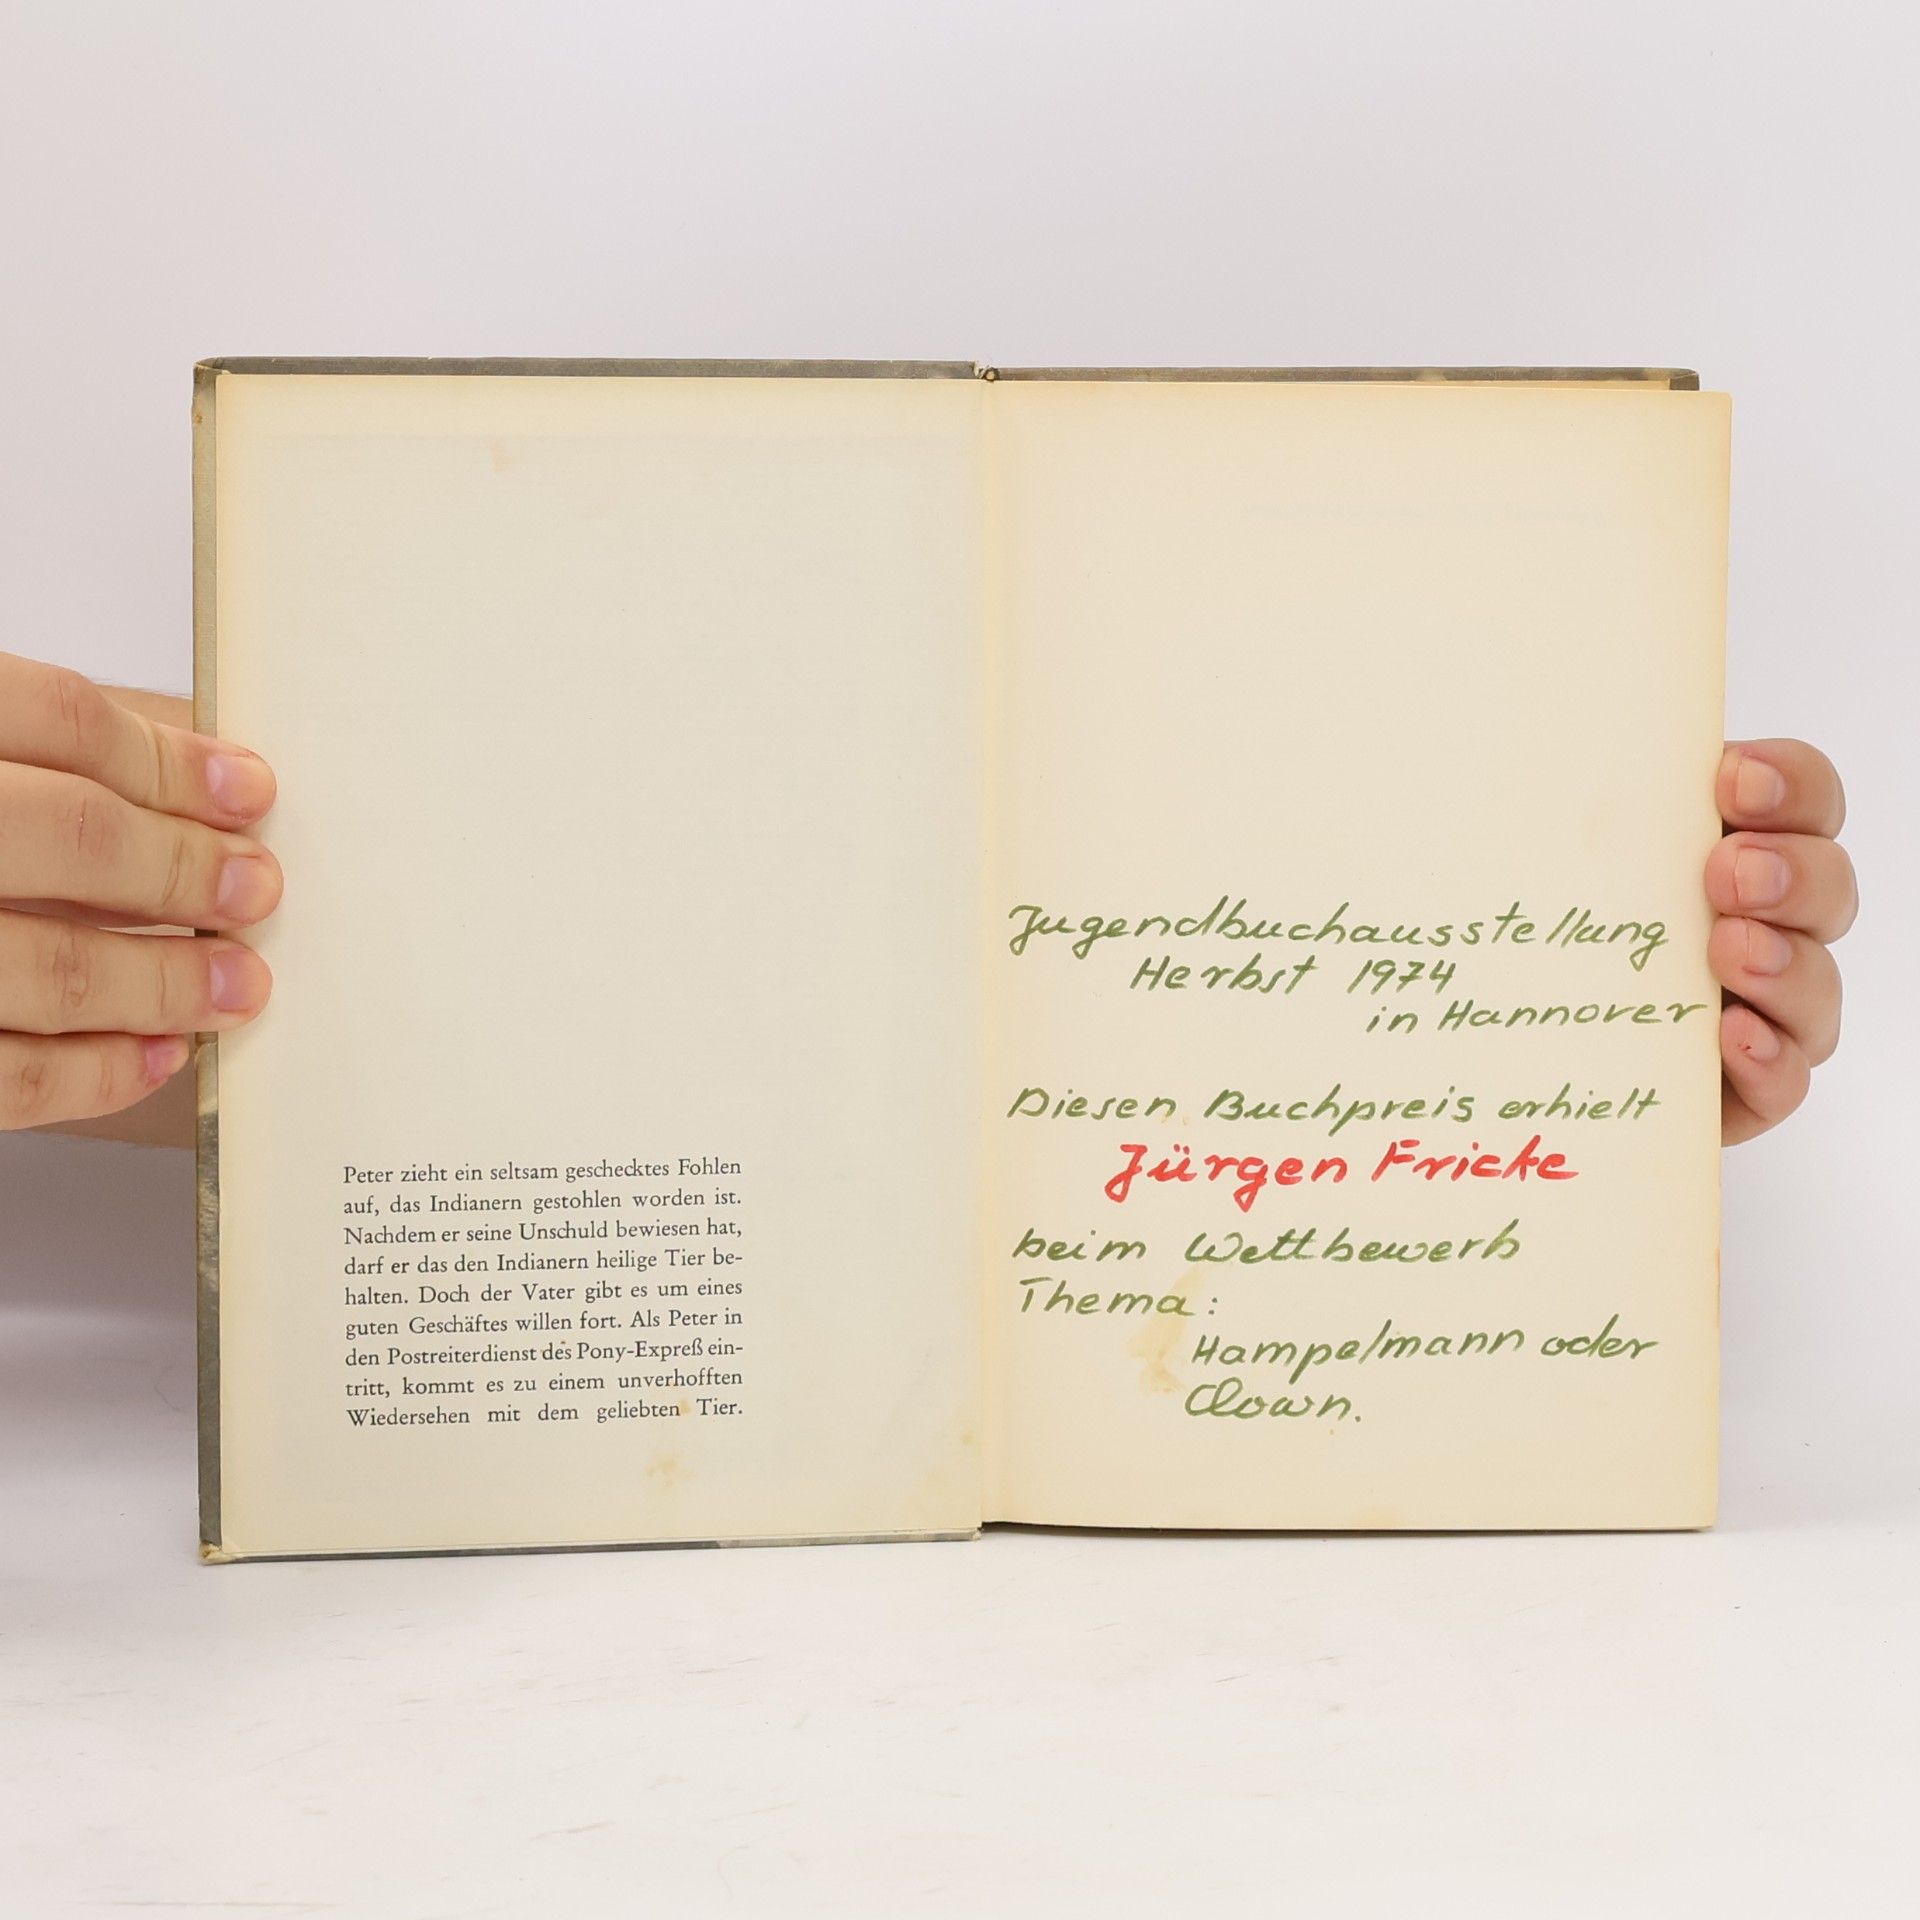 Peter zieht ein seltsam geschecktes Fohlen
auf, das Indianern gestohlen worden ist.
Nachdem er seine Unschuld bewiesen hat,
darf er das den Indianern heilige Tier be-
halten. Doch der Vater gibt es um eines
guten Geschäftes willen fort. Als Peter in
den Postreiterdienst des Pony-Expreß ein-
tritt, kommt es zu einem unverhofften
Wiedersehen mit dem geliebten Tier.
Jugendbuchausstellung
Herbst 1974
in Hannover
Diesen Buchpreis erhielt
Jürgen Fricke
beim Wettbewerb
Thema:
Hampelmann oder
Clown.